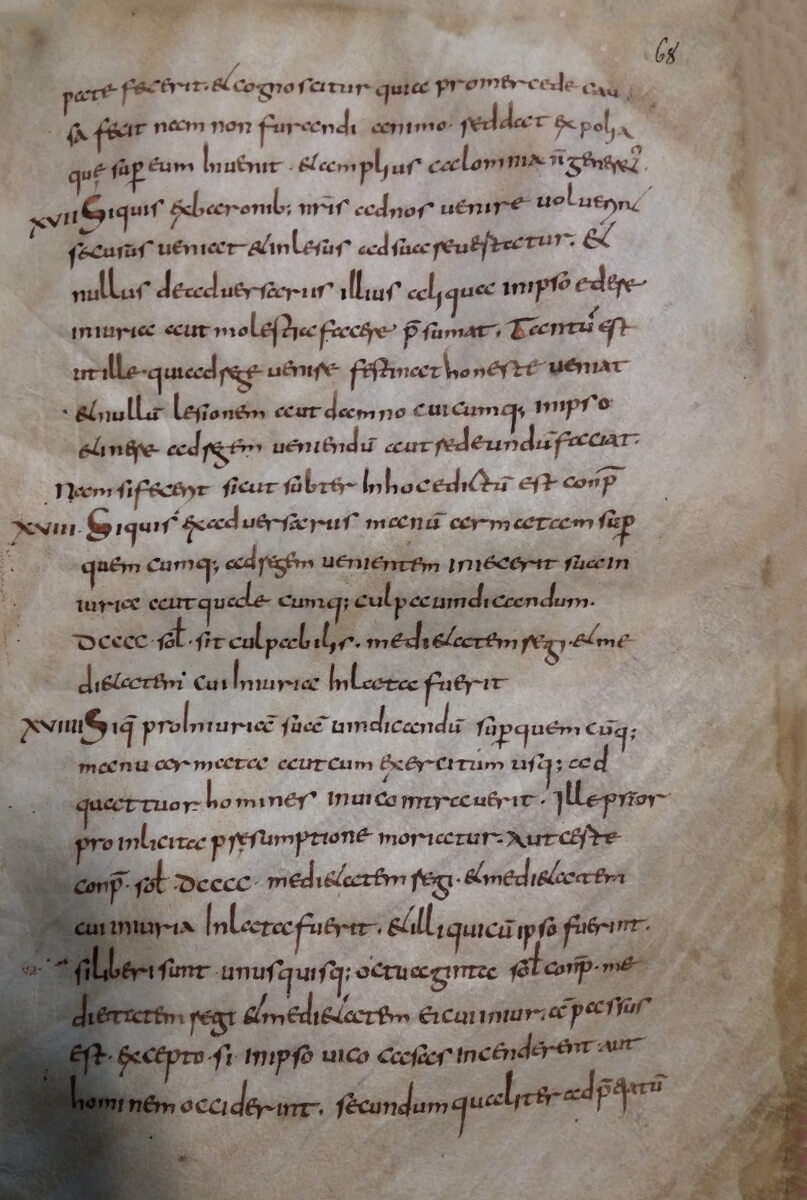 68
pate fecerit. et cognoscitur quia pro mercede cau
sa fecit nam non furandi animo. seddat ex poliis
que sup eum Inuenit. et amplius calomnia nō generet͛.
XVII Siquis exbaronib; nr̄is adnos uenire uoluerint
securus ueniat et inlesus adsuae reuertatur. et
nullus deaduersarius illius aliquae inipso edere
iniuriae aut molestiae facere p̄sumat. Tantū est
utille quiadrege uenire festinat honeste ueniat
et nullū lesionem aut damno cuicumq; inipso
et inere adregem ueniendū aut redeundū faciat.
Nam si fecerit sicut subter Inhoc edictū est conp̄
XVIII. Siquis exaduersarius manū armatam sup̄
quem cumq; adregem uenientem iniecerit suain
iuria aut quale cumq; culpa uindicandum.
DCCCC sol̄. sit culpabilis. medietatem regi. et me
dietatem cui Iniuria Inlata fuerit
XVIIII Siq̄ proIniuriā suā uindicandū sup̄quem cūq;
manu armata aut cum exercitum usq; ad
quattuor homines inuico intrauerit. Ille prior
pro inlicita presumptione moriatur. Aut certe
conp̄. sol̄ DCCCC medietatem regi. et medietatem
cui iniuria Inlata fuerit. et illi qui cū ipso fuerint.
si liberi sunt unusquisq; octuaginta sol̄ conp̄. me
dietatem regi et medietatem ei cui iniur.ā passus
est. excepto. si inipso uico casas incenderent. aut
hominem occiderint. secundum qualiter adp̄etiatū